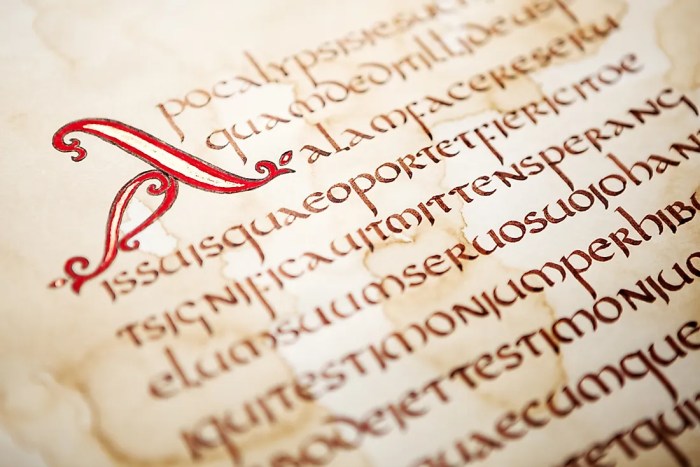 Apocalypsisjesu
quamdeditillideusp
alamfacereseru
issuisquaeoportetfiericitoe
tsignificauitmittensperang
elumsuumseruosuojohan
iquitestimoniumperhib
bodeiettestimoniu
uaecumque
tetqui